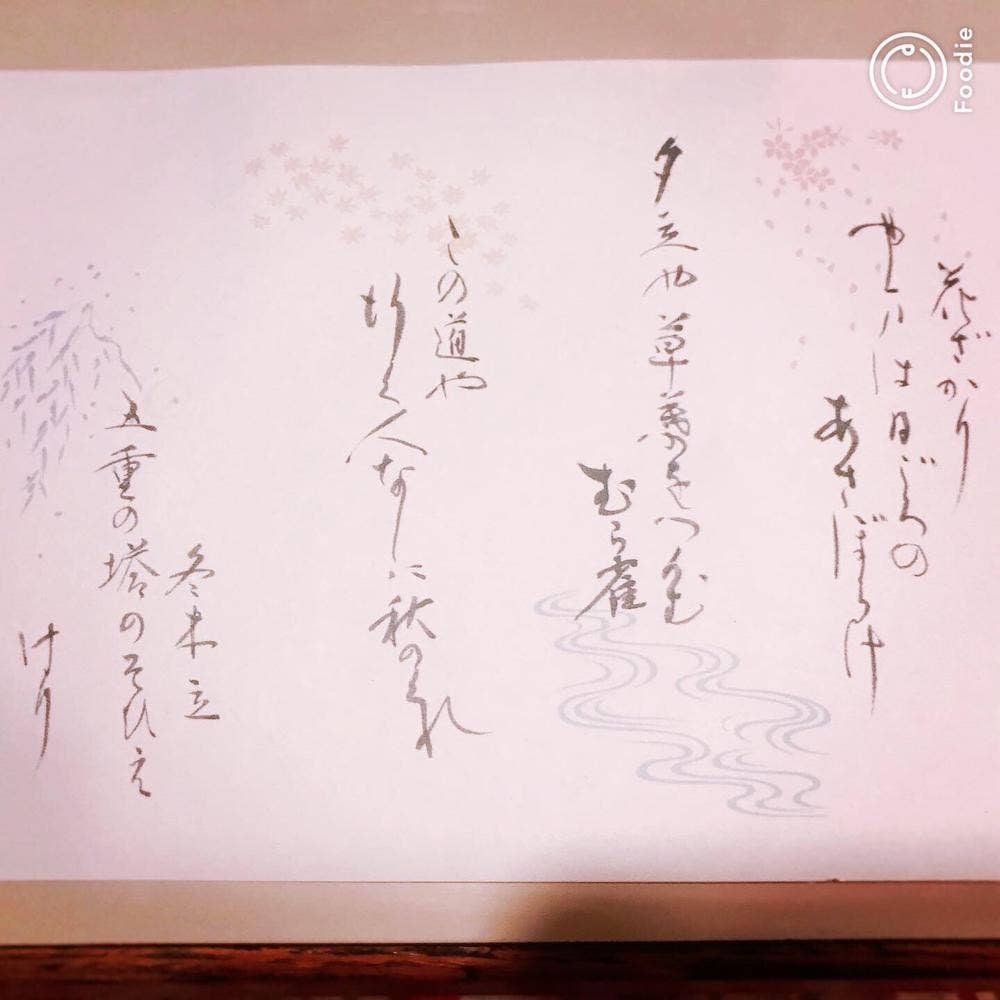 花ざかり
山は日ごろの
あさぼらけ
夕立や草葉をつかむ
むら雀
この道や
行く人なしに秋の暮れ
冬木立
五重の塔のそびえ
けり
Foodie